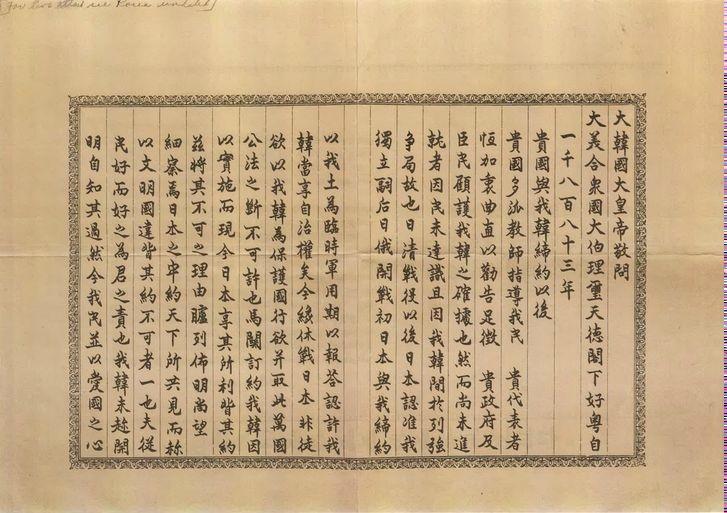 [For
see Korea
大韓國大皇帝敬問
大美合衆國大伯理璽天德閣下好粵自
一千八百八十三年
貴國與我韓締約以後
貴國多派教師指導我民 貴代表者
恒加衷曲直以勸告足徵 貴政府及
臣民顧護我韓之確據也然而尚未進
就者因民未達識且因我韓間於列強
爭局故也日清戰役以後日本認准我
獨立嗣后日俄開戰初日本與我締約
以我土為臨時軍用期以報答認許我
韓當享自治權矣今纔休戰日本非徒
欲以我韓為保護國行欲并取此萬國
公法之斷不可許也馬關訂約我韓因
以實施而現今日本享其所利背其約
茲將其不可之理由臚列佈明尚望
細察焉日本之牢約天下所共見而称
以文明國違背其約不可者一也夫從
民好而好之為君之責也我韓未趁開
明自知其過然今我民並以愛國之心